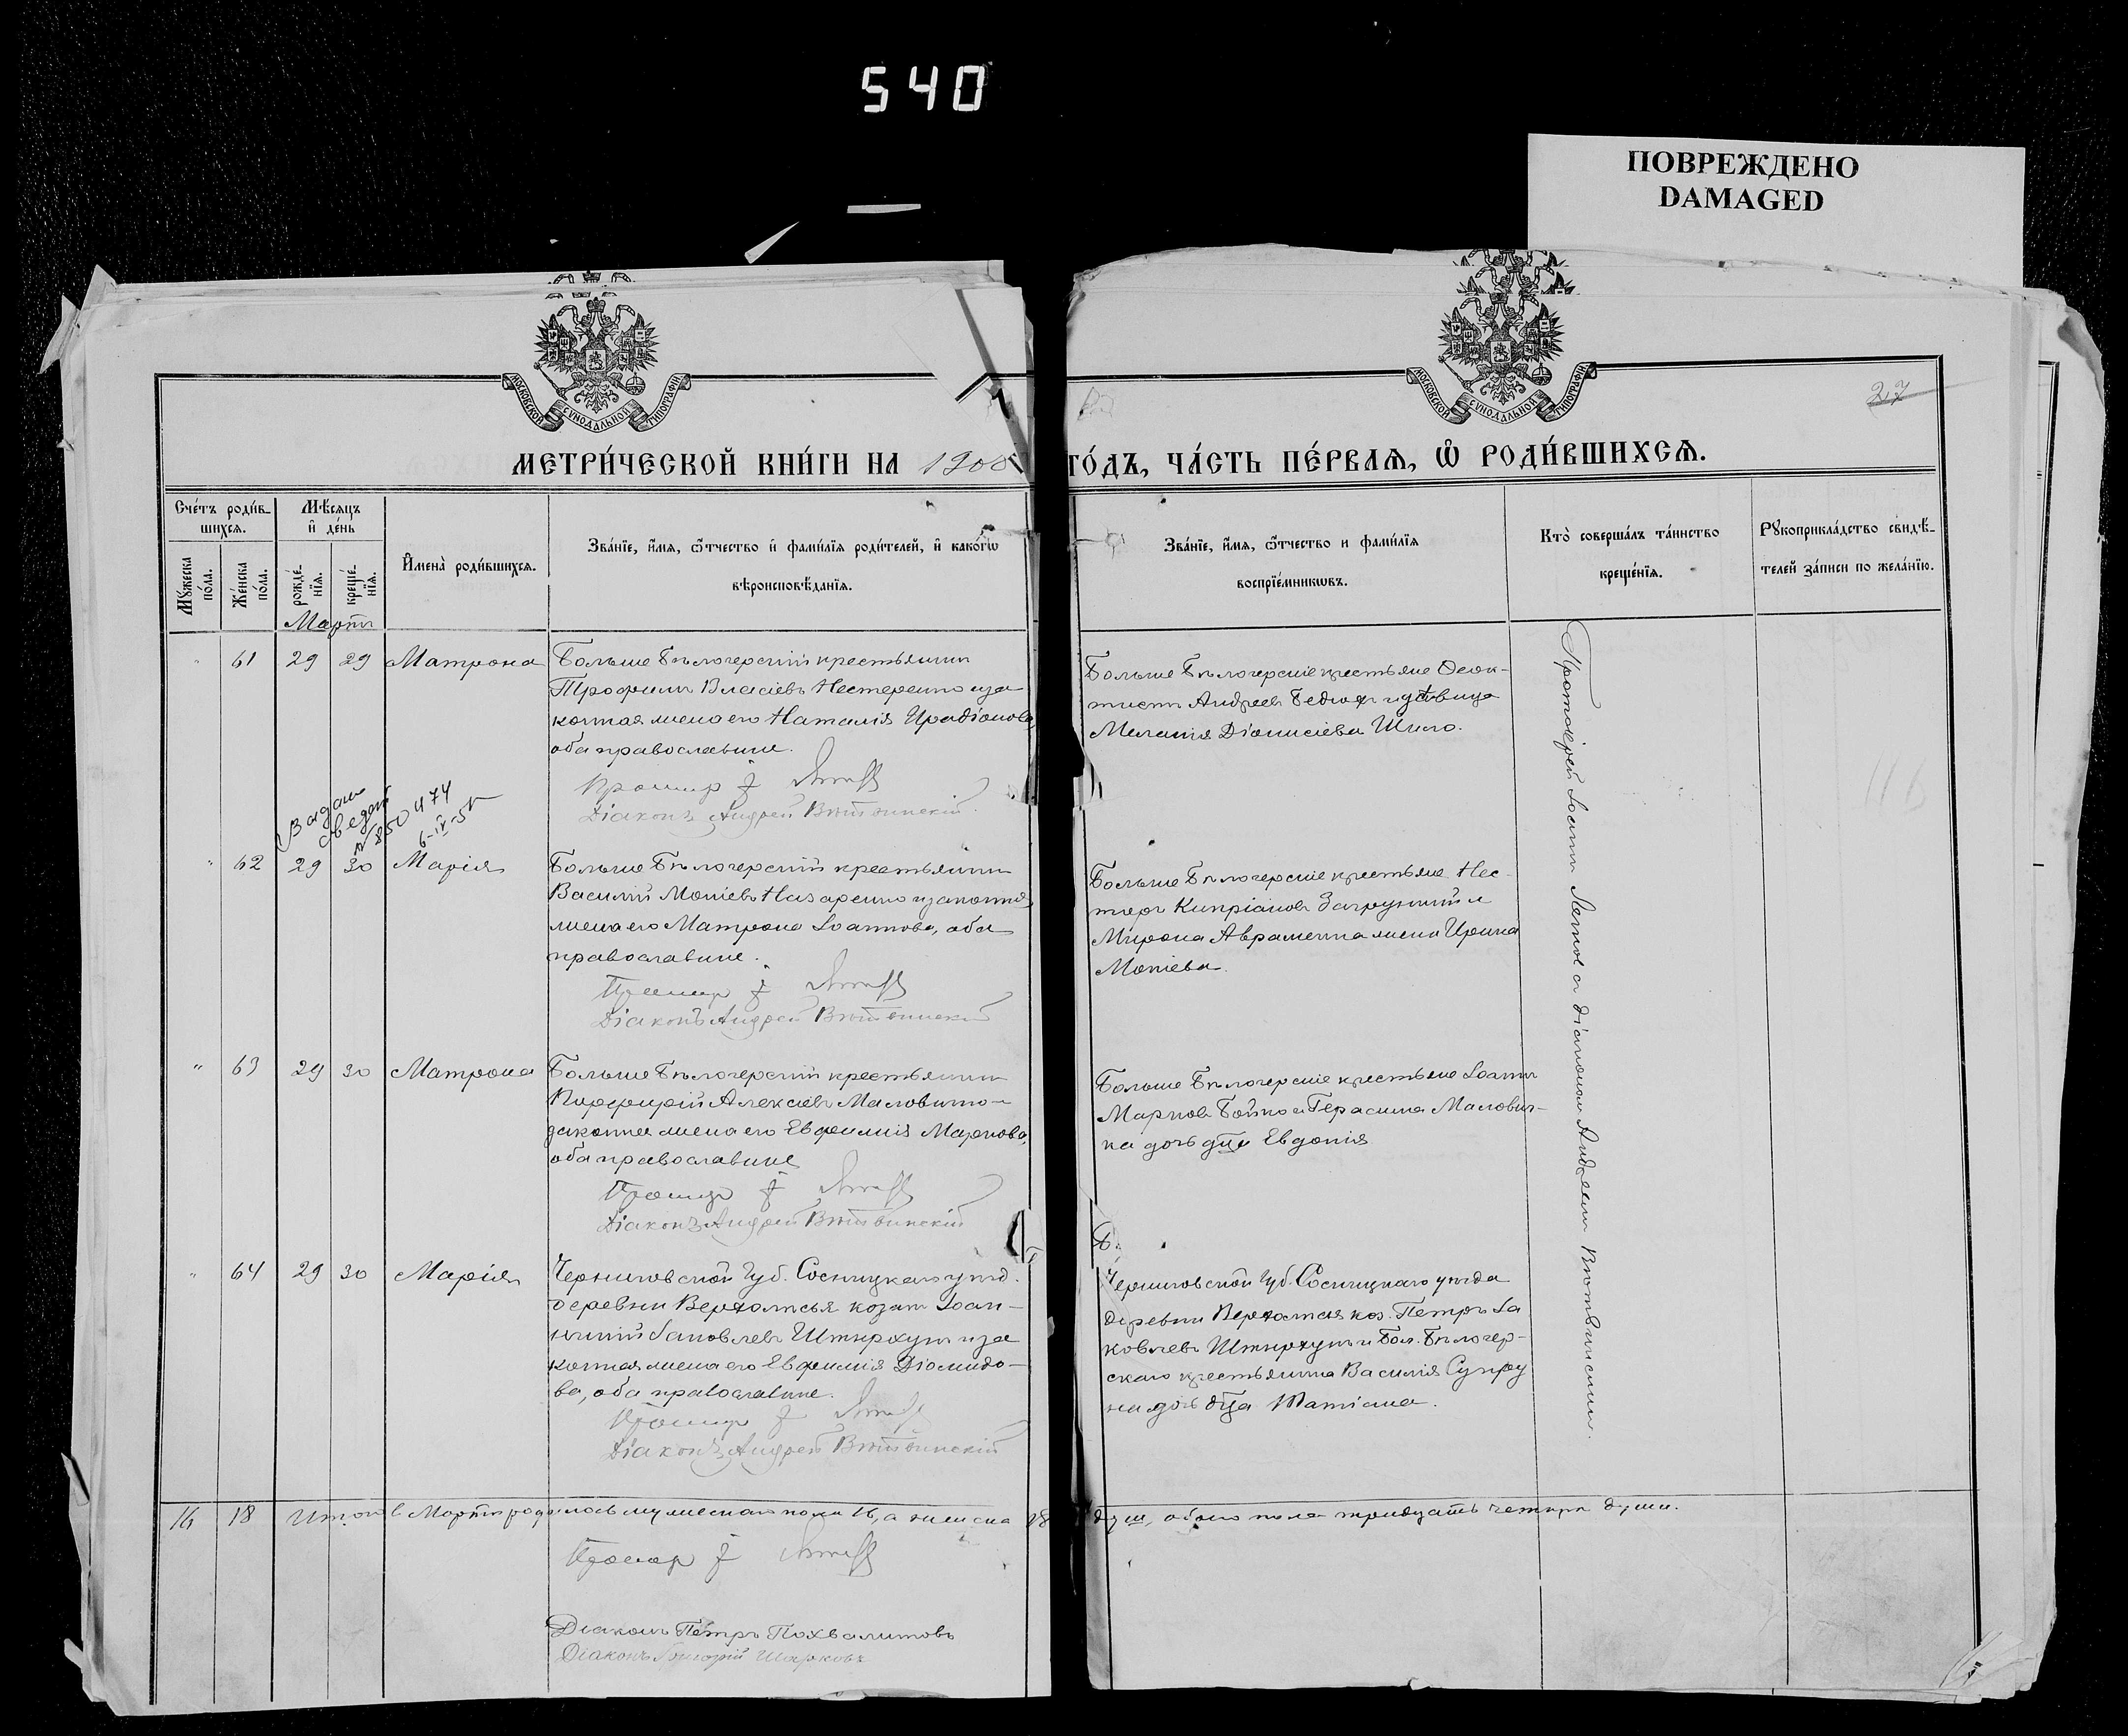 540
ПОВРЕЖДЕНО
DAMAGED
МОСКОВСКОЙ СѴНОДАЛЬНОЙ ТИПОГРАФІИ
МОСКОВСКОЙ СѴНОДАЛЬНОЙ ТИПОГРАФІИ
27
МЕТРИ́ЧЕСКОЙ КНИ́ГИ НА 1900 ГО́ДЪ, ЧА́СТЬ ПЕ́РВАѦ, Ѽ РОДИ́ВШИХСѦ.
Сче́тъ роди́в-
шихсѧ.
Мꙋжеска по́ла.
Же́нска по́ла.
Мѣ́сѧцъ
и҆ де́нь
рожде́-
нїѧ.
креще́-
нїѧ.
И҆мена̀ роди́вшихсѧ.
Зва́нїе, и҆́мѧ, ѻ҆́тчество и҆ фами́лїѧ роди́телей, и҆ како́гѡ
вѣроисповѣ́данїѧ.
Зва́нїе, и҆́мѧ, ѻ҆́тчество и фами́лїѧ
воспрїе́мникѡвъ.
Кто̀ соверша́лъ та́инство
креще́нїѧ.
Рꙋкоприкла́дство свидѣ́-
телей за́писи по жела́нїю.
Мартъ
" 61 29 29 Матрона
Больше Бѣлозерскій крестьянинъ
Трофимъ Власіевъ Нестеренко и за
конная жена его Наталія Иродіонова,
оба православные.
Діаконъ Андрей Витвинскій
Больше Бѣлозерскіе крестьяне Ѳеок-
тистъ Андреевъ и вдовица
Меланія Діонисіева Шило.
" 62 29 30 Марія
Больше Бѣлозерскій крестьянинъ
Василій Мокіевъ Назаренко и законная
жена его Матрона Іоаннова, оба
православные.
Діаконъ Андрей Витвинскій
Больше Бѣлозерскіе крестьяне Нес-
торъ Кипріановъ Загрунный и
Мирона Авраменка жена Ирина
Мокіева.
" 63 29 30 Матрона
Больше Бѣлозерскій крестьянинъ
Порфирій Алексіевъ Маловичко и
законная жена его Евфимія Маркова,
оба православные
Діаконъ Андрей Витвинскій
Больше Бѣлозерскіе крестьяне Іоаннъ
Марковъ Бойко и Герасима Малович-
ка дочь дѣца Евдокія
" 64 29 30 Марія
Черниговской Губ. Сосницкаго уѣзд.
деревни козакъ Іоан-
Іаковлевъ и за
конная жена его Евфимія Діомидо-
ва, оба православные.
Діаконъ Андрей Витвинскій
Черниговской Губ. Сосницкаго уѣзда
деревни коз. Петръ Іа
ковлевъ и Бол. Бѣлозер-
скаго крестьянина Василія Супру
на дочь дѣца Татіана.
Протоіерей Іоаннъ съ діакономъ Андреемъ Витвинскимъ.
16 18 Итого в Мартѣ родилось мужескаго пола 16, а женска 18 душ, обоего пола тридцать четыре души.
Діаконъ Петръ Похвалитовъ
Діаконъ Григорій Шарковъ